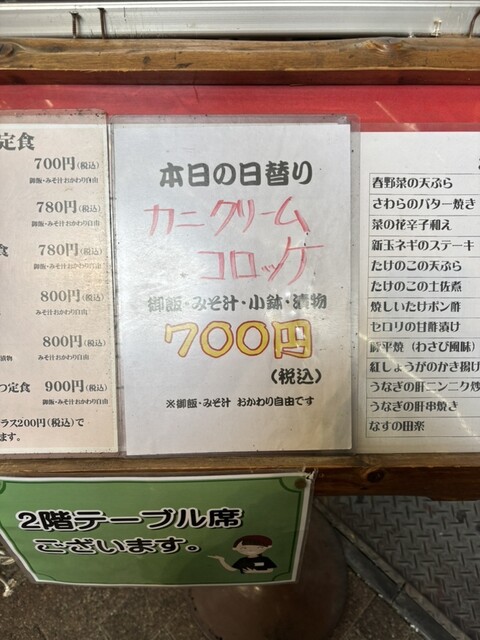 定食
700円(税込)
御飯・みそ汁おかわり自由
780円(税込)
御飯・みそ汁おかわり自由
食 780円(税込)
御飯・みそ汁おかわり自由
800円(税込)
御飯・みそ汁おかわり自由
800円(税込)
漬物 御飯・みそ汁おかわり自由
つ定食 900円(税込)
御飯・みそ汁おかわり自由
ラス200円(税込)で
ます。
本日の日替り
カニクリーム
コロッケ
御飯・みそ汁・小鉢・漬物
700円
(税込)
※御飯・みそ汁 おかわり自由です
春野菜の天ぷら
さわらのバター焼き
菜の花辛子和え
新玉ネギのステーキ
たけのこの天ぷら
たけのこの土佐煮
焼しいたけポン酢
セロリの甘酢漬け
平焼(わさび風味)
紅しょうがのかき揚げ
うなぎの肝ニンニク炒
うなぎの肝串焼き
なすの田楽
2階テーブル席
ございます。